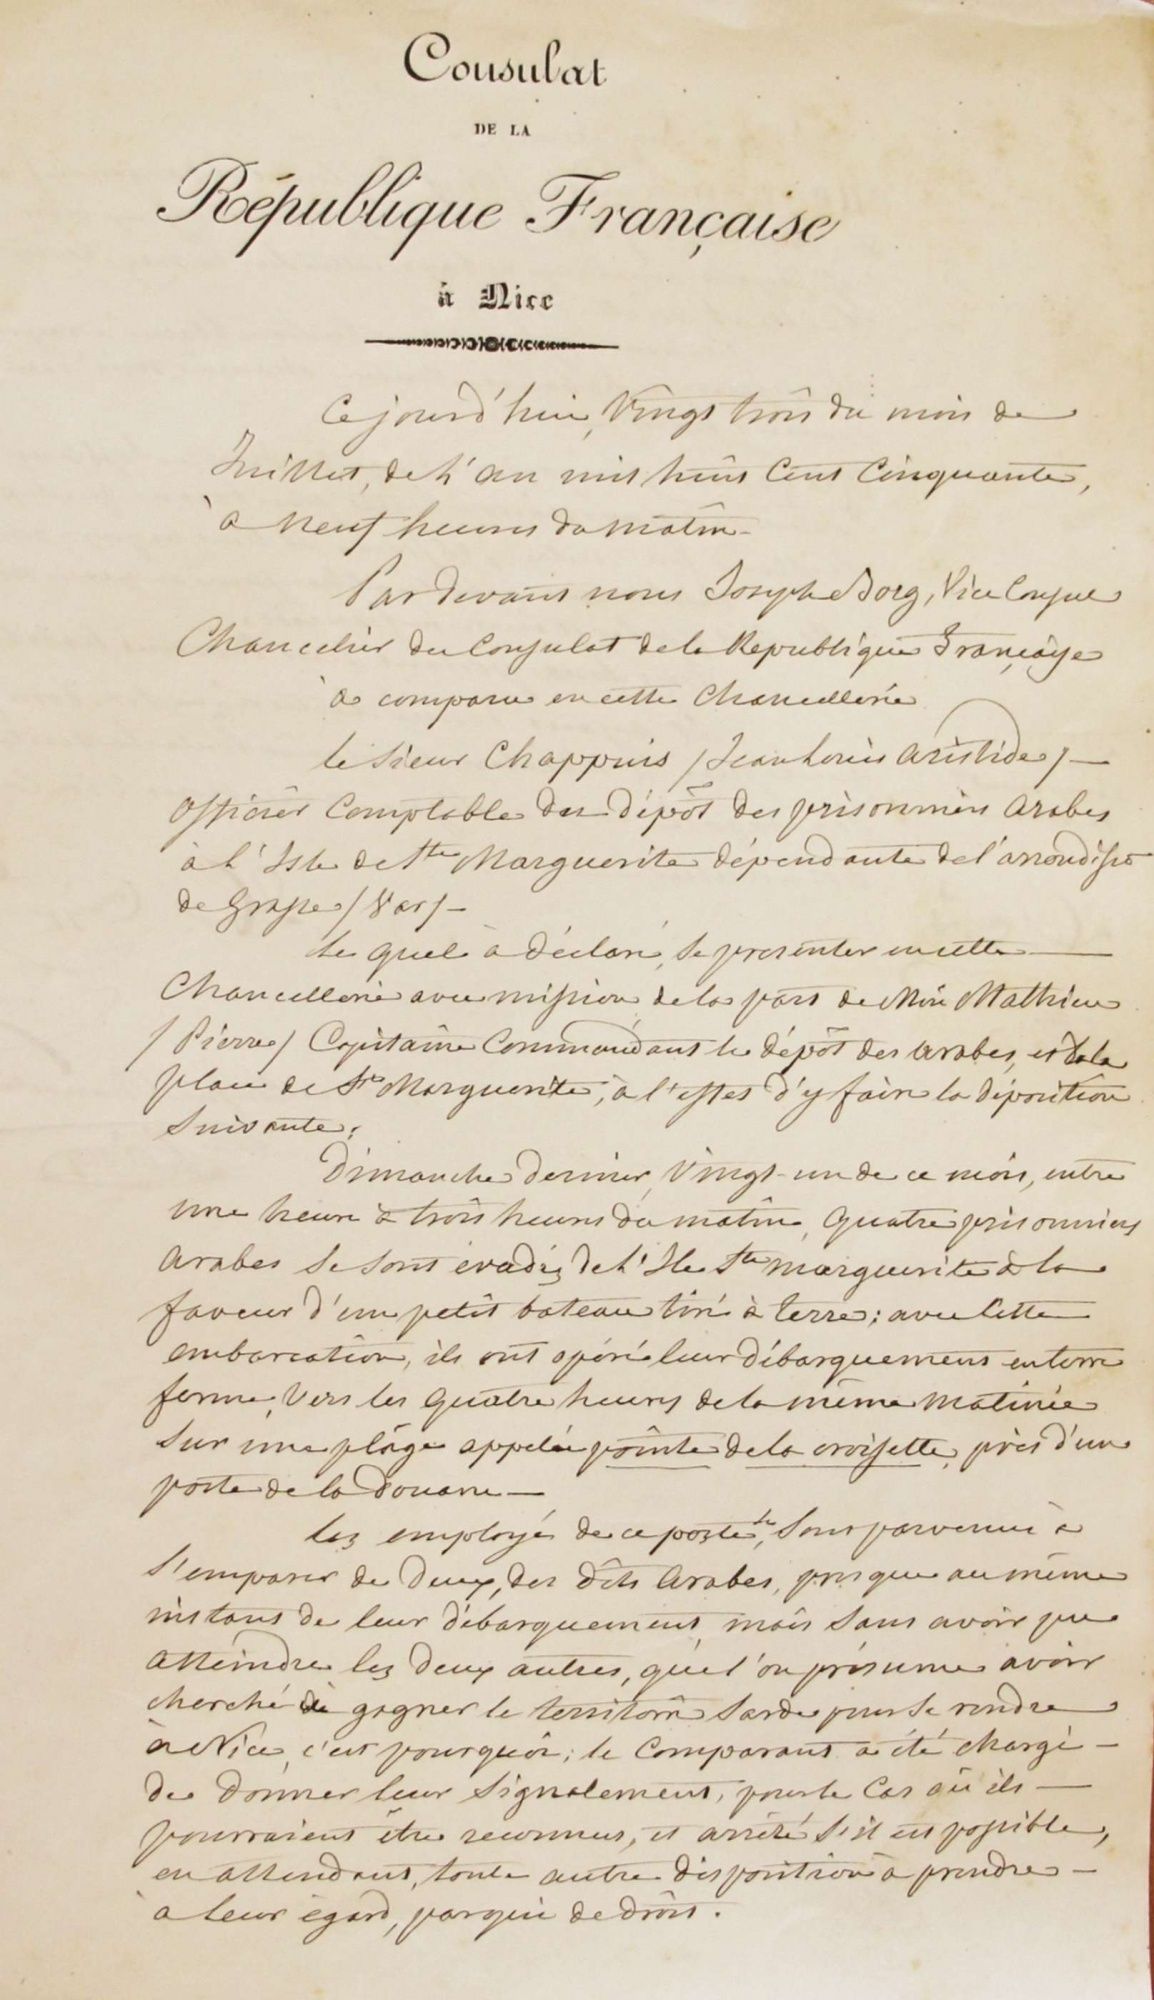 Consulat
DE LA
République Française
à Nice
Ce jourd'hui, Vingt trois du mois de
Juillet, de l'an mil huit Cent Cinquante,
à neuf heures du matin -
Par devant nous Joseph Borg, Vice Consul
Chancelier du Consulat de la Republique Française
à comparu en cette Chancellerie
le Sieur Chappuis / Jean Louis Aristide / —
officier Comptable du dépôt des prisonniers Arabes
à l'Isle de Ste Marguerite dépendante de l'arrondisst
de Grasse / Var / -
Le quel à déclaré, se presenter en cette —
Chancellerie avec mission de la part de Mr Mathieu
/ Pierre / Capitaine Commandant le dépôt des arabes, et de la
place de Ste Marguerite, à l'effet d'y faire la déposition
Suivante:
Dimanche dernier, Vingt-un de ce mois, entre
une heure à trois heures du matin, quatre prisonniers
Arabes se sont évadés de l'Ile Ste Marguerite à la
faveur d'un petit bateau tiré à terre; avec Cette
embarcation, ils ont opéré leur débarquement en terre
ferme, Vers les quatre heures de la même matinée
Sur une plâge appelée pointe de la croisette, près d'un
poste de la Douane —
Les employé de ce poste, Sont parvenus à
S'emparer de Deux, des dits Arabes, presque au même
instant de leur débarquement, mais Sans avoir pu
Atteindre les deux autres, que l'on présume avoir
cherché à gagner le territoire Sarde pour Se rendre
à Nice, c'est pourquoi; le Comparant a été chargé —
de donner leur Signalement, pour le Cas où ils —
pourraient être reconnus, et arrêté S'il est possible,
en attendant, toute autre disposition à prendre —
à leur égard, par qui de droit.